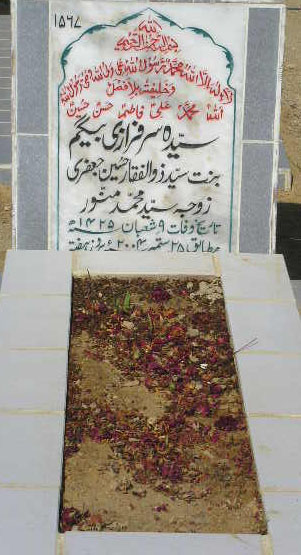 ۱۵۶۷
الله
بسم الله الرحمن الرحیم
لا الہ الا اللہ محمد رسول اللہ علی ولی اللہ وصی رسول اللہ
وخلیفتہ بلا فصل
اللہ محمد علی فاطمہ حسن حسین
سیدہ سرفرازی بیگم
بنت سید ذوالفقار حسین جعفری
زوجہ سید محمد منور
تاریخ وفات ۹ شعبان ۱۴۲۵ھ
مطابق ۲۵ ستمبر ۲۰۰۴ء بروز ہفتہ